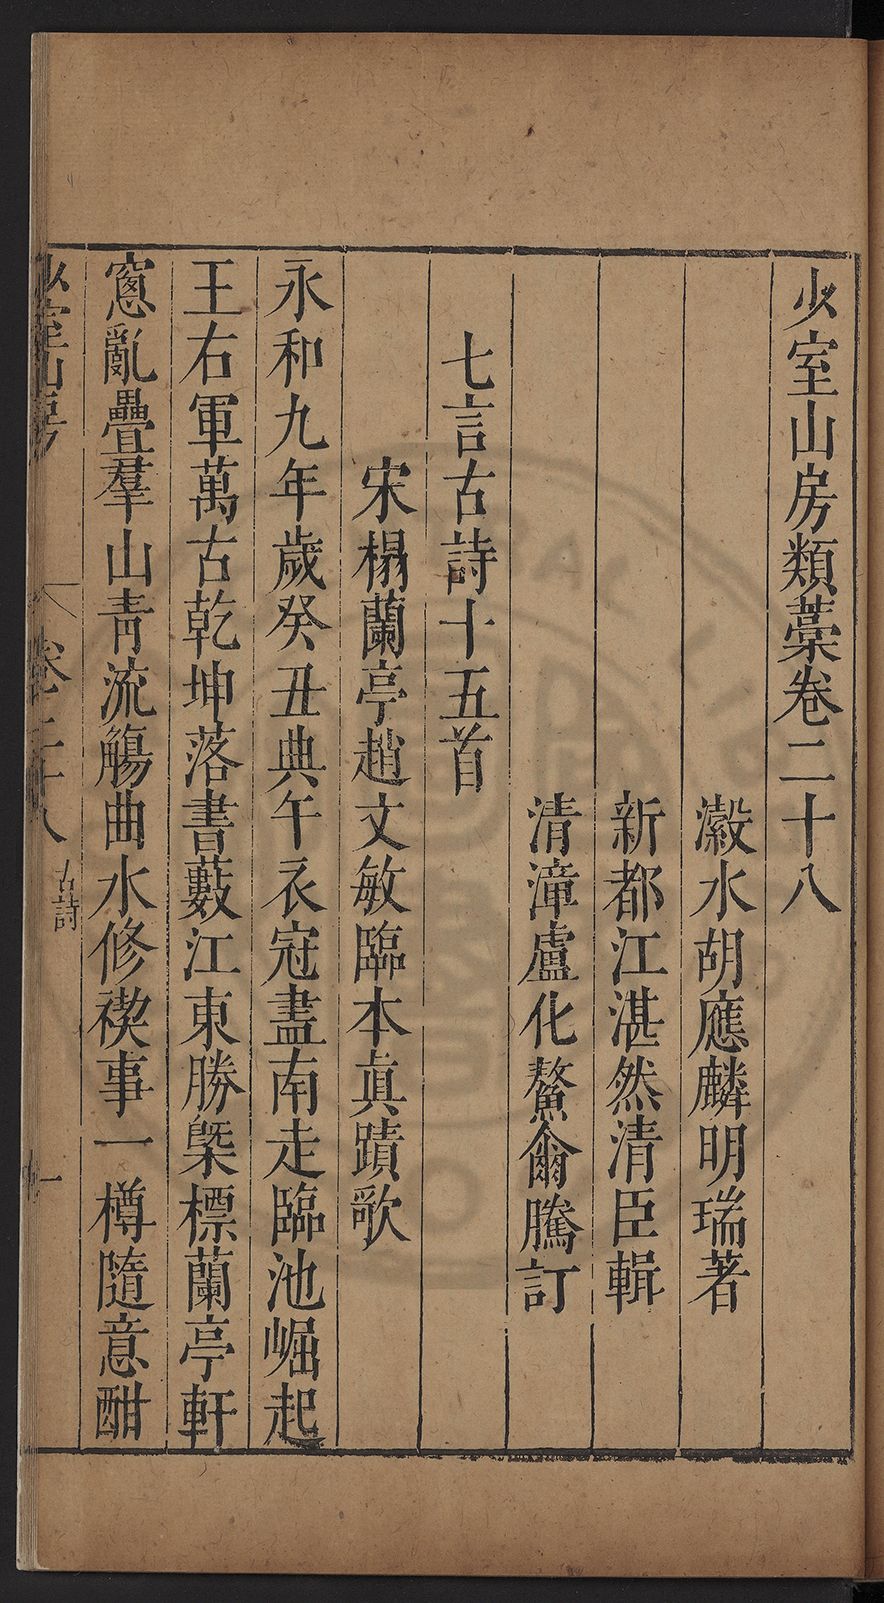 少室山房類藁卷二十八
瀫水胡應麟明瑞著
新都江湛然清臣輯
清漳盧化鰲爾騰訂
七言古詩十五首
宋榻蘭亭趙文敏臨本眞蹟歌
永和九年歲癸丑典午衣冠盡南走臨池崛起
王右軍萬古乾坤落書藪江東勝槩標蘭亭軒
窻亂疊羣山青流觴曲水修禊事一樽隨意酣
少室山房
卷二十八
古詩
一